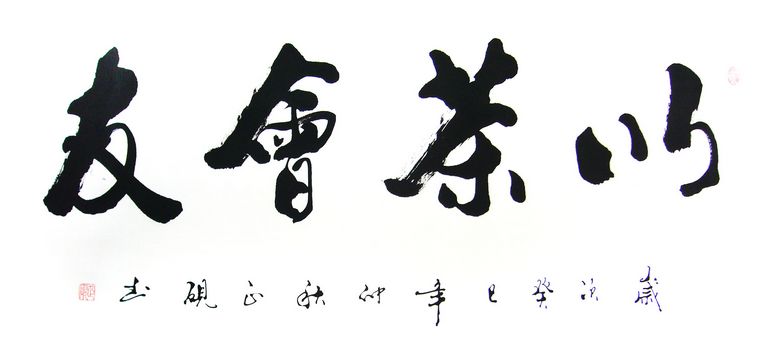 以茶會友
歲次癸巳年仲秋正硯書